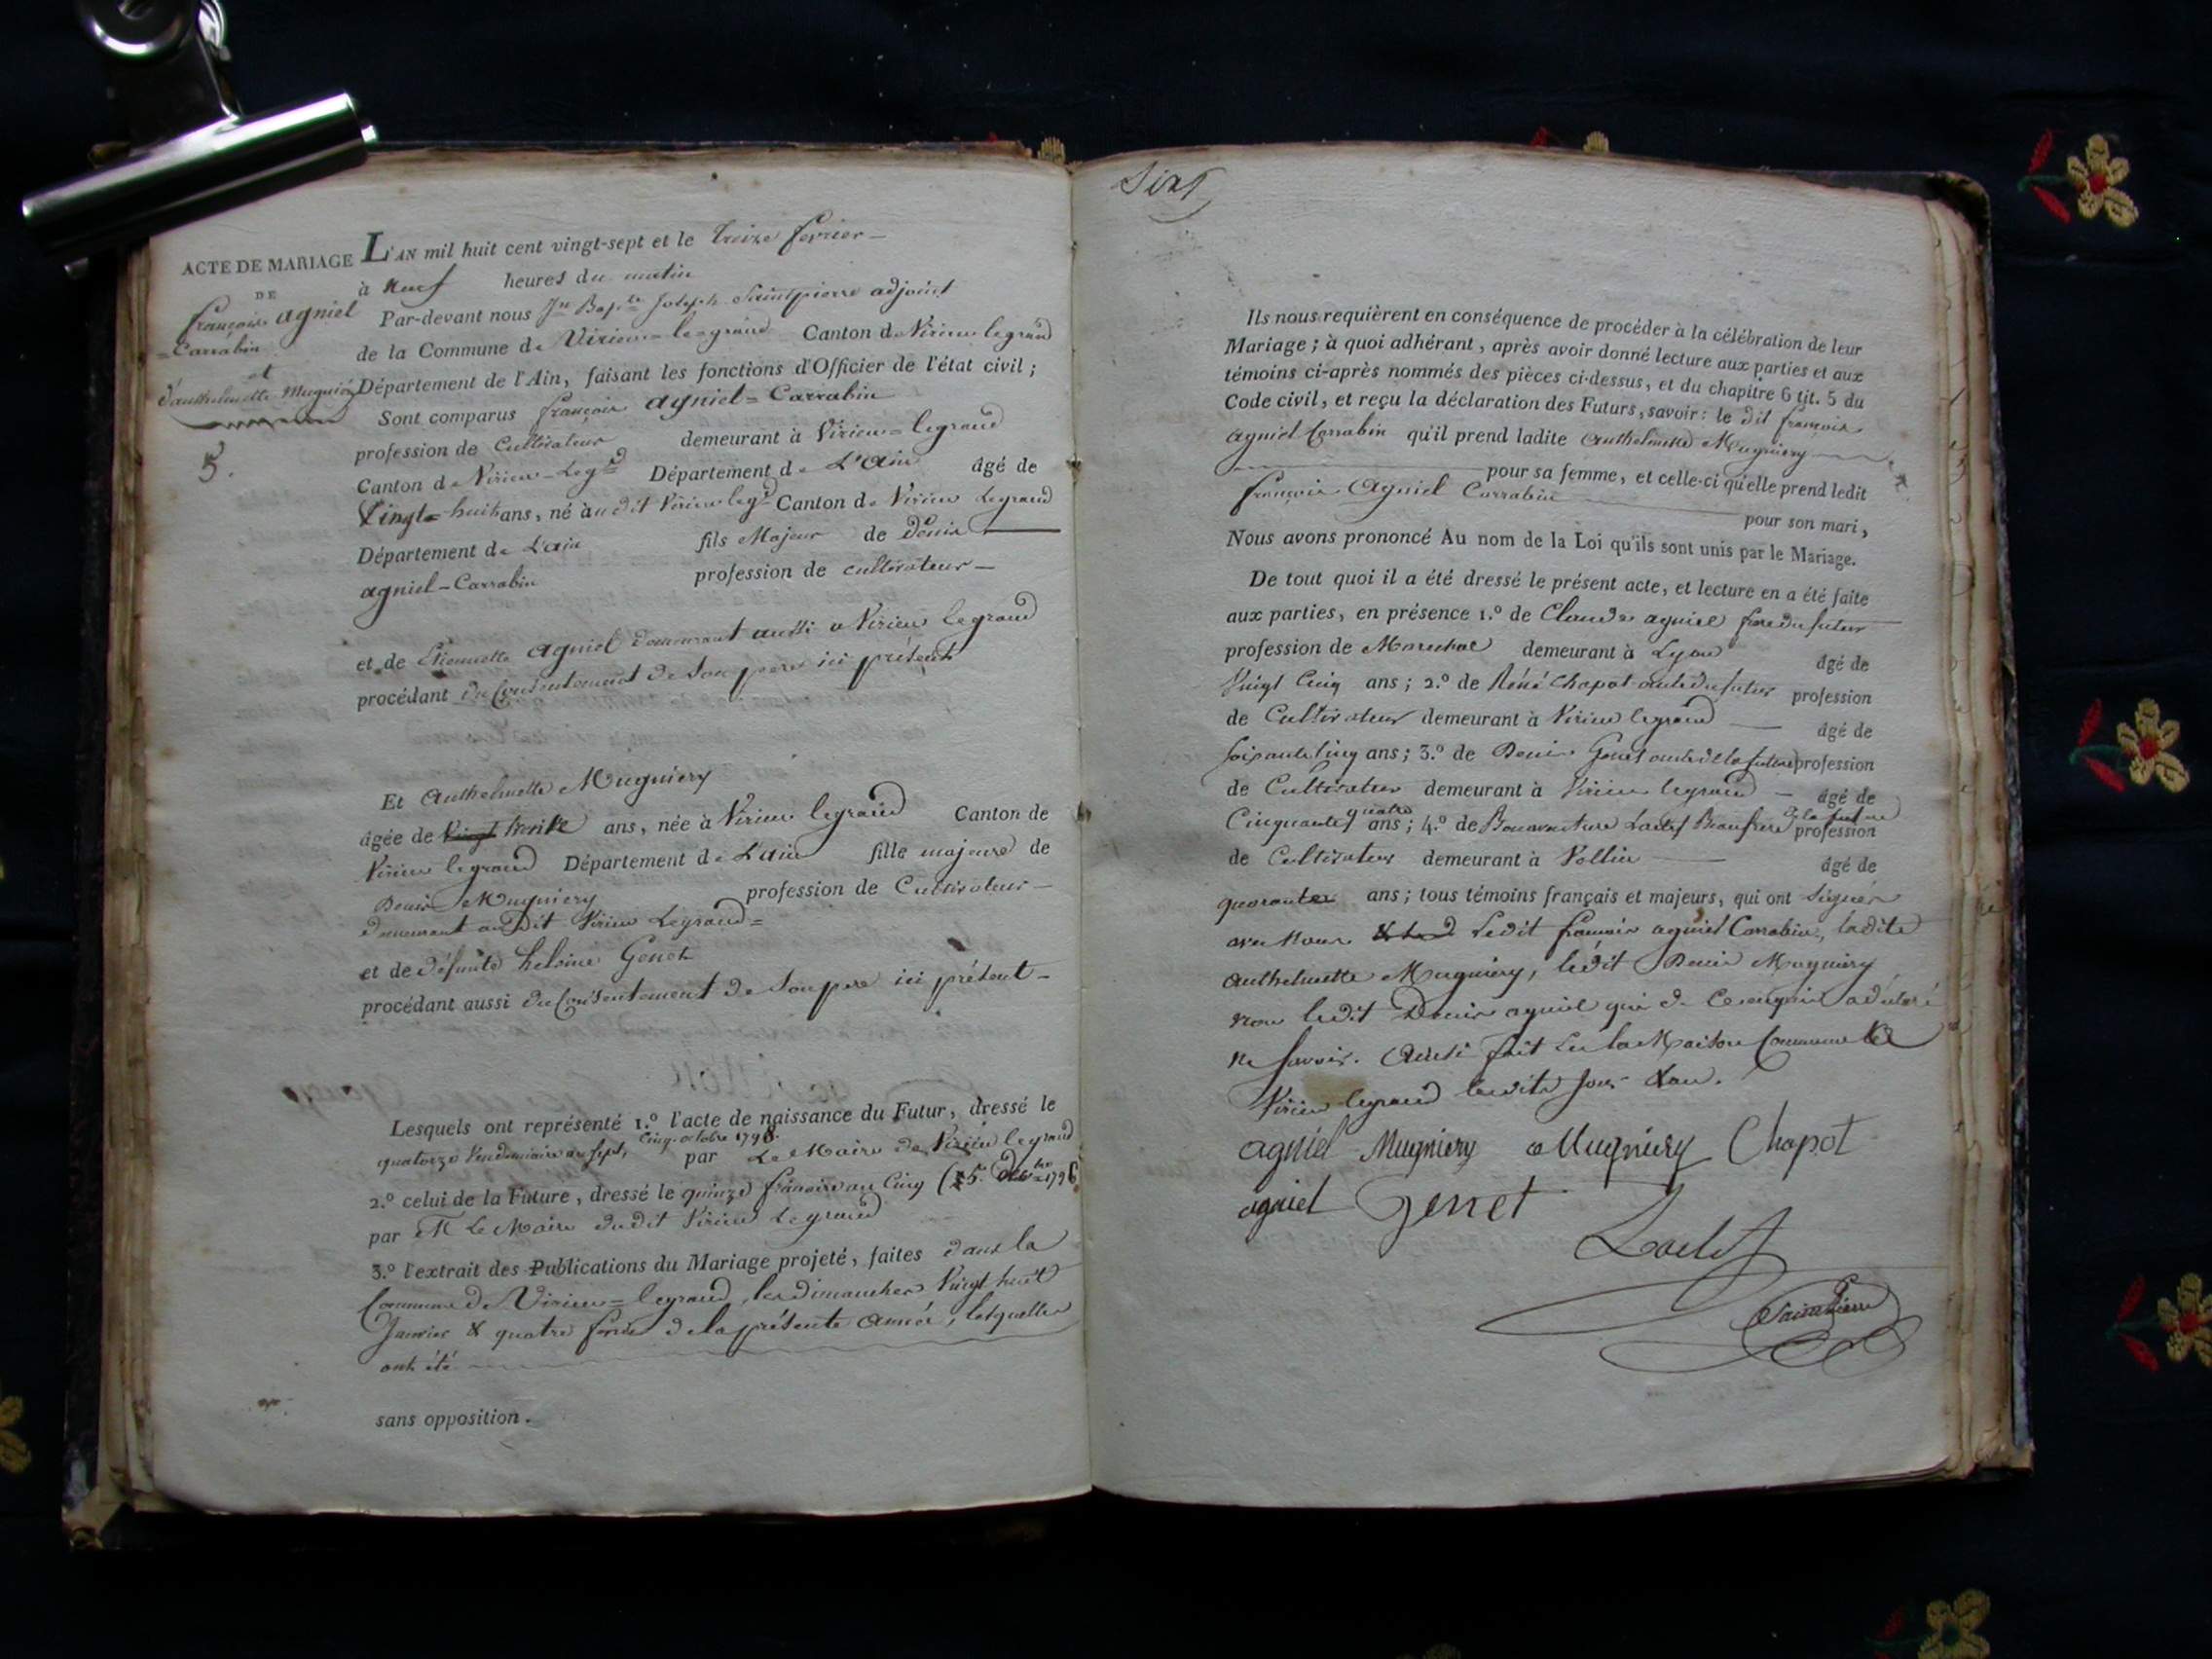 ACTE DE MARIAGE
DE
françois agniel
=Carrabin
et
d'anthelmette Mugniéry
5.
L'AN mil huit cent vingt-sept et le treize fevrier —
à neuf heures du matin
Par-devant nous Jn Bapte Joseph Saintpierre adjoint
de la Commune de Virieu=le=grand Canton de Virieu legrand
Département de l'Ain, faisant les fonctions d'Officier de l'état civil ;
Sont comparus françois agniel=Carrabin
profession de Cultivateur demeurant à Virieu=legrand
Canton de Virieu-Legd Département de L'ain âgé de
Vingt=huit ans, né àudit Virieu legd Canton de Virieu Legrand
Département de L'ain fils Majeur de Denis
agniel-Carrabin profession de cultivateur —
et de Etiennette agniel demeurant aussi a Virieu legrand
procédant du Consentement de Son pere ici présent
Et Anthelmette Mugniery
âgée de Vingt trente ans, née à Virieu legrand Canton de
Virieu legrand Département de L'ain fille majeure de
Denis Mugniery profession de Cultivateur —
demeurant audit Virieu Legrand=
et de défunte heloine Genet
procédant aussi du Consentement de Son pere ici présent —
Lesquels ont représenté 1.º l'acte de naissance du Futur, dressé le
quatorze Vendemiaire an Sept, Cinq. octobre 1798. par Le Maire de Virieu legrand
2.º celui de la Future, dressé le quinze frimaire an Cinq (5. Decbre 1796
par M Le Maire dudit Virieu Legrand
3.º l'extrait des Publications du Mariage projeté, faites dans la
Commune de Virieu=legrand, les dimanches Vingt huit
Janvier & quatre fevrier de la présente année, lesquelles
ont été
sans opposition.
Six
Ils nous requièrent en conséquence de procéder à la célébration de leur
Mariage ; à quoi adhérant, après avoir donné lecture aux parties et aux
témoins ci-après nommés des pièces ci-dessus, et du chapitre 6 tit. 5 du
Code civil, et reçu la déclaration des Futurs, savoir : le dit françois
agniel Carrabin qu'il prend ladite anthelmette Mugniery
pour sa femme, et celle-ci qu'elle prend ledit
françois Agniel Carrabin
pour son mari,
Nous avons prononcé Au nom de la Loi qu'ils sont unis par le Mariage.
De tout quoi il a été dressé le présent acte, et lecture en a été faite
aux parties, en présence 1.º de Claude agniel frere du futur
profession de Marechal demeurant à Lyon âgé de
Vingt Cinq ans ; 2.º de Réné Chapot oncle du futur profession
de Cultivateur demeurant à Virieu legrand — âgé de
Soixante Cinq ans ; 3.º de Denis Genet oncle de la future profession
de Cultivateur demeurant à Virieu legrand — âgé de
Cinquante quatre ans ; 4.º de Bonaventure Lactet Beaufrere de la future profession
de Cultivateur demeurant à Pollieu — âgé de
quarante ans ; tous témoins français et majeurs, qui ont Signés
avec Nous Ledit françois agniel Carrabin, ladite
anthelmette Mugniery, ledit Denis Mugniery
non ledit Denis agniel qui de Ce enquis adéclaré
Ne Savoir. Ainsi fait en la Maison Commune de
Virieu legrand lesdits Jour & an.
agniel Mugniery a Mugniery Chapot
agniel Genet
Lactet
Saintpierre